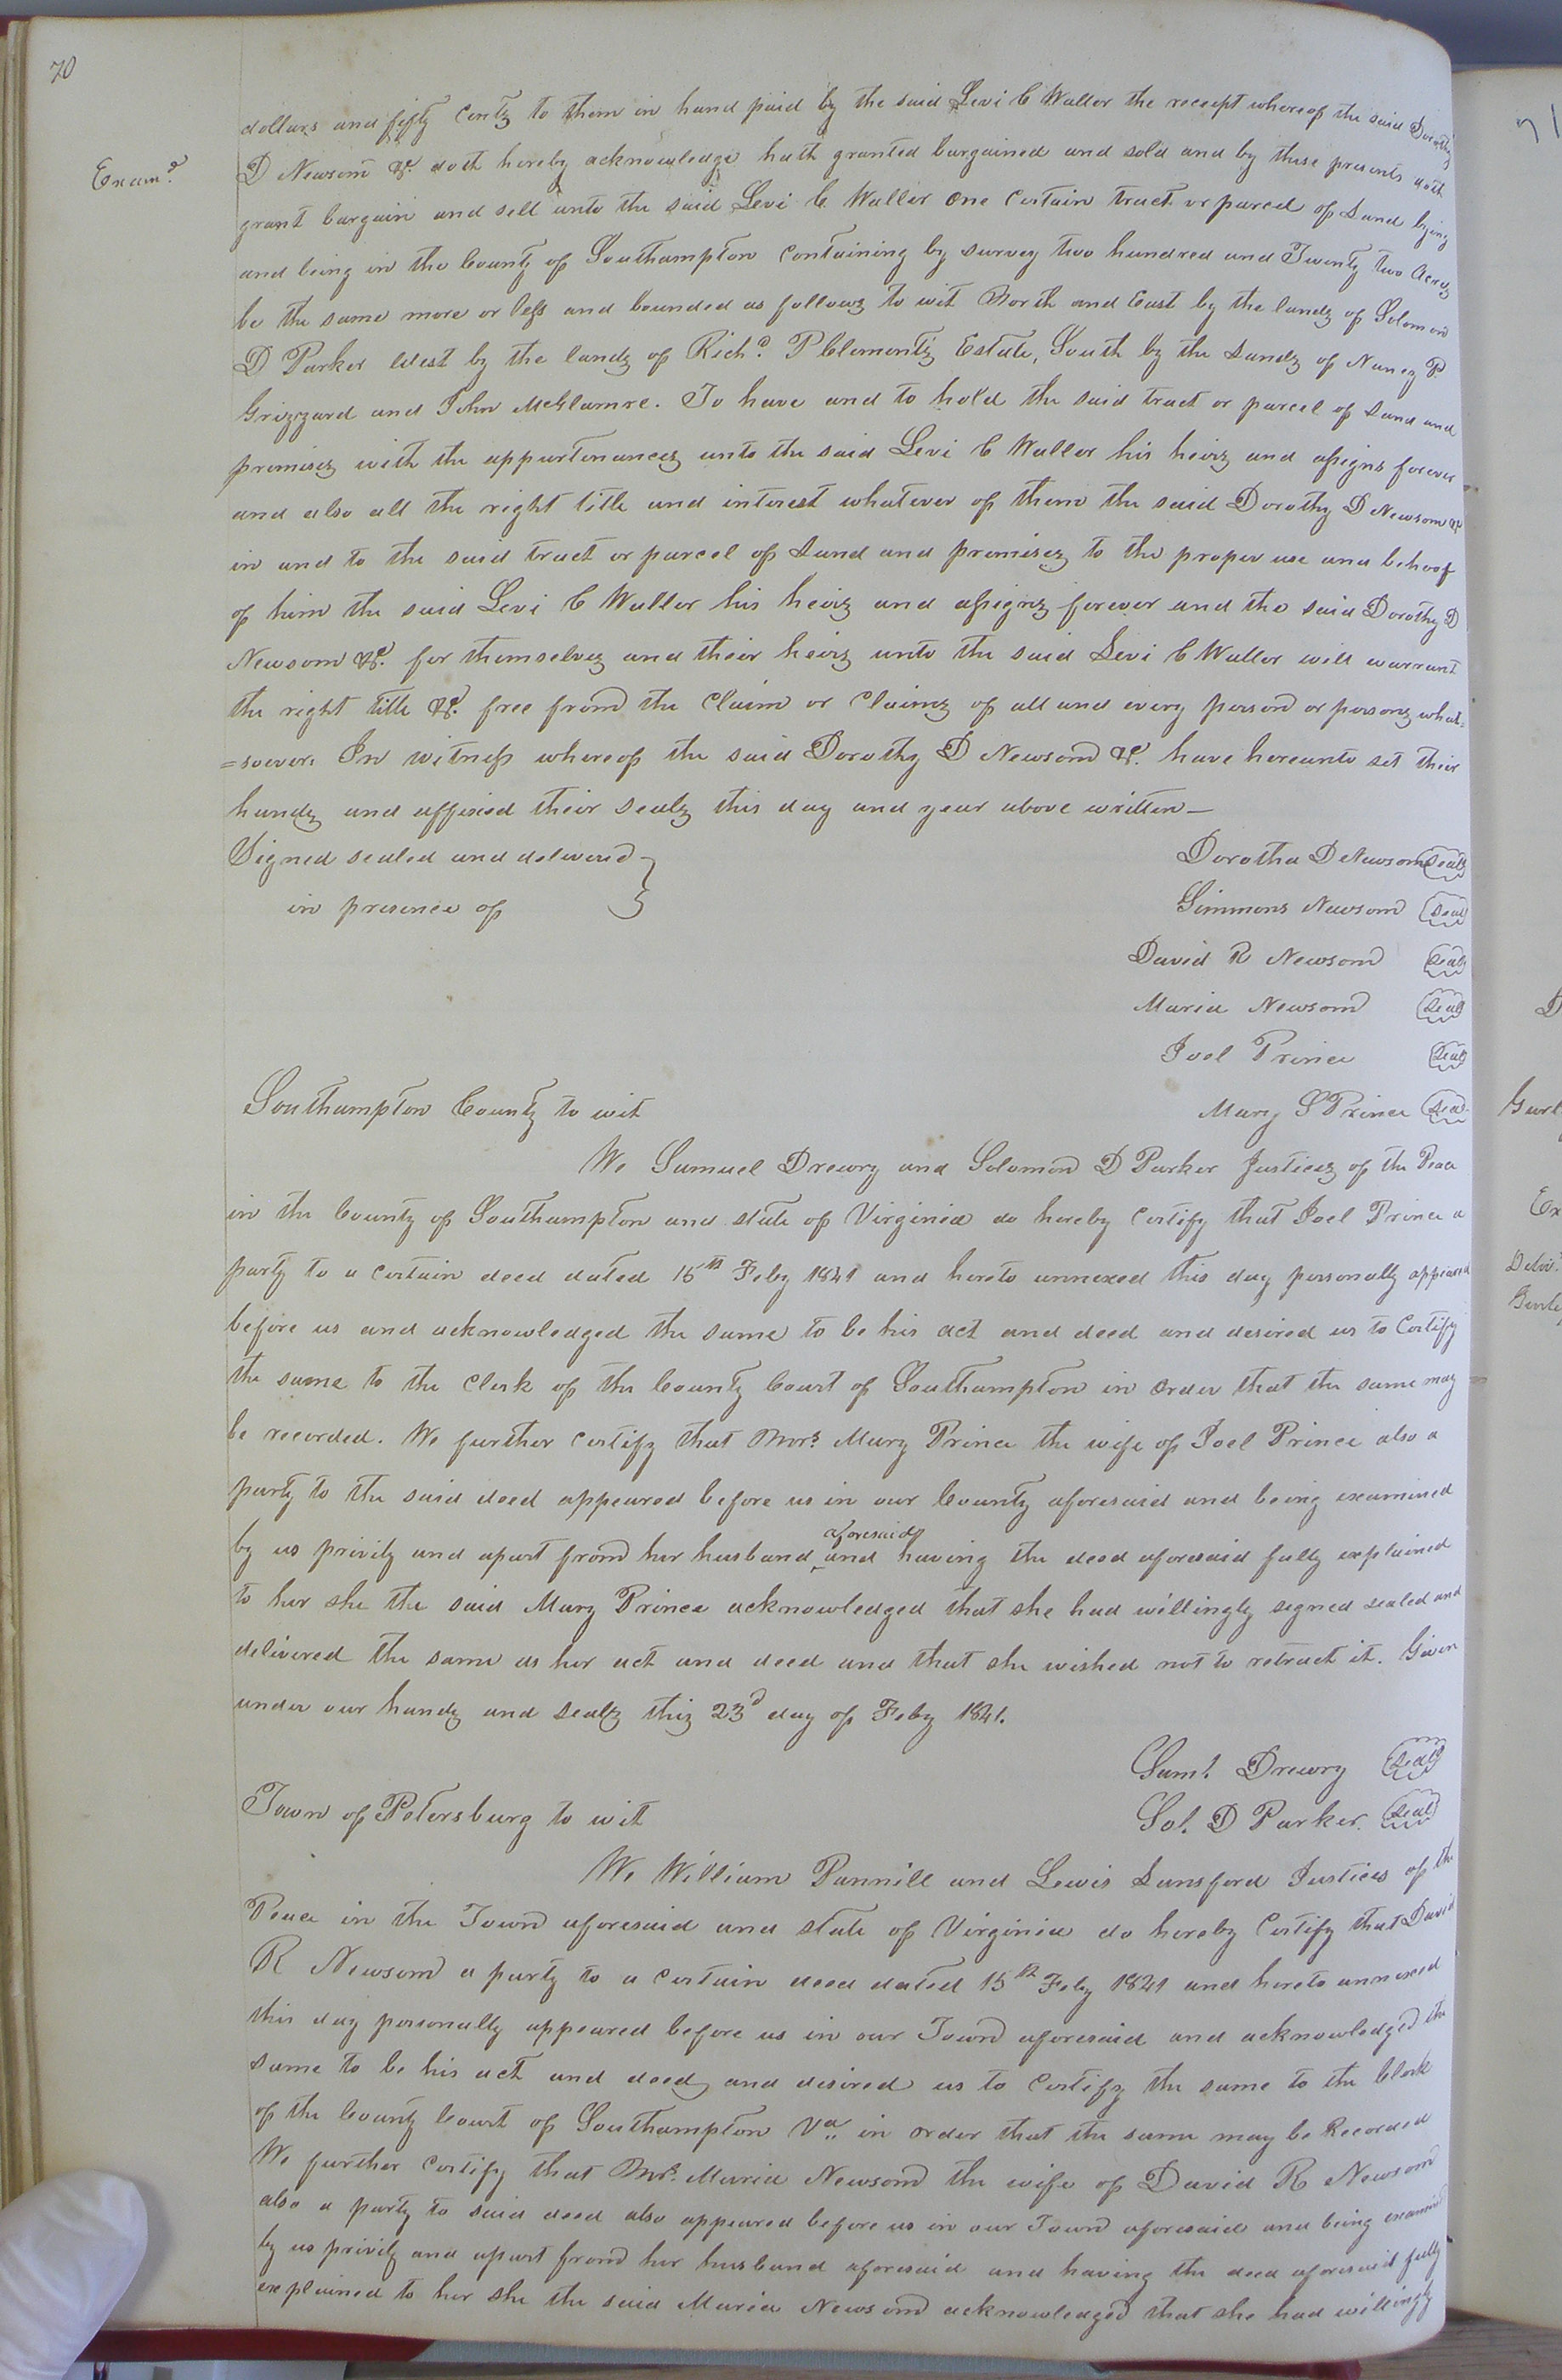 70
dollars and fifty Cents to them in hand paid by the said Levi C Waller the receipt whereof the said Dorothy
Examd.
D Newsom &c. doth hereby acknowledge hath granted bargained and sold and by these presents doth
grant bargain and sell unto the said Levi C Waller One Certain tract or parcel of Land lying
and being in the County of Southampton Containing by survey two hundred and Twenty two Acres
be the same more or less and bounded as follows to wit North and East by the lands of Solomon
D Parker West by the lands of Richd. P Clements Estate, South by the Lands of Nancy P.
Grizzard and John McGlamre. To have and to hold the said tract or parcel of Land and
premises with the appurtenances unto the said Levi C Waller his heirs and assigns forever
and also all the right title and interest whatever of them the said Dorothy D Newsom &c
in and to the said tract or parcel of Land and premises to the proper use and behoof
of him the said Levi C Waller his heirs and assigns forever and the said Dorothy D
Newsom &c. for themselves and their heirs unto the said Levi C Waller will warrant
the right title &c. free from the Claim or Claims of all and every person or persons what=
=soever. In witness whereof the said Dorothy D Newsom &c. have hereunto set their
hands and affixed their seals this day and year above written—
Signed sealed and delivered }
in presence of
Dorotha D Newsom Seal
Simmons Newsom Seal
David R Newsom Seal
Maria Newsom Seal
Joel Prince Seal
Southampton County to wit
Mary S Prince Seal
We Samuel Drewry and Solomon D Parker Justices of the Peace
in the County of Southampton and state of Virginia do hereby Certify that Joel Prince a
party to a Certain deed dated 15th Feby 1841 and hereto annexed this day personally appeared
before us and acknowledged the same to be his act and deed and desired us to Certify
the same to the Clerk of the County Court of Southampton in Order that the same may
be recorded. We further Certify that Mrs. Mary Prince the wife of Joel Prince also a
party to the said deed appeared before us in our County aforesaid and being examined
by us privily and apart from her husband aforesaid and having the deed aforesaid fully explained
to her she the said Mary Prince acknowledged that she had willingly signed sealed and
delivered the same as her act and deed and that she wished not to retract it. Given
under our hands and seals this 23d day of Feby 1841.
Saml. Drewry Seal
Town of Petersburg to wit
Sol. D Parker. Seal
We William Pannill and Lewis Lunsford Justices of the
Peace in the Town aforesaid and state of Virginia do hereby Certify that David
R Newsom a party to a Certain deed dated 15th Feby 1841 and hereto annexed
this day personally appeared before us in our Town aforesaid and acknowledged the
same to be his act and deed and desired us to Certify the same to the Clerk
of the County Court of Southampton Va. in order that the same may be Recorded
We further Certify that Mrs. Maria Newsom the wife of David R Newsom
also a party to said deed also appeared before us in our Town aforesaid and being examined
by us privily and apart from her husband aforesaid and having the deed aforesaid fully
explained to her she the said Maria Newsom acknowledged that she had willingly
71